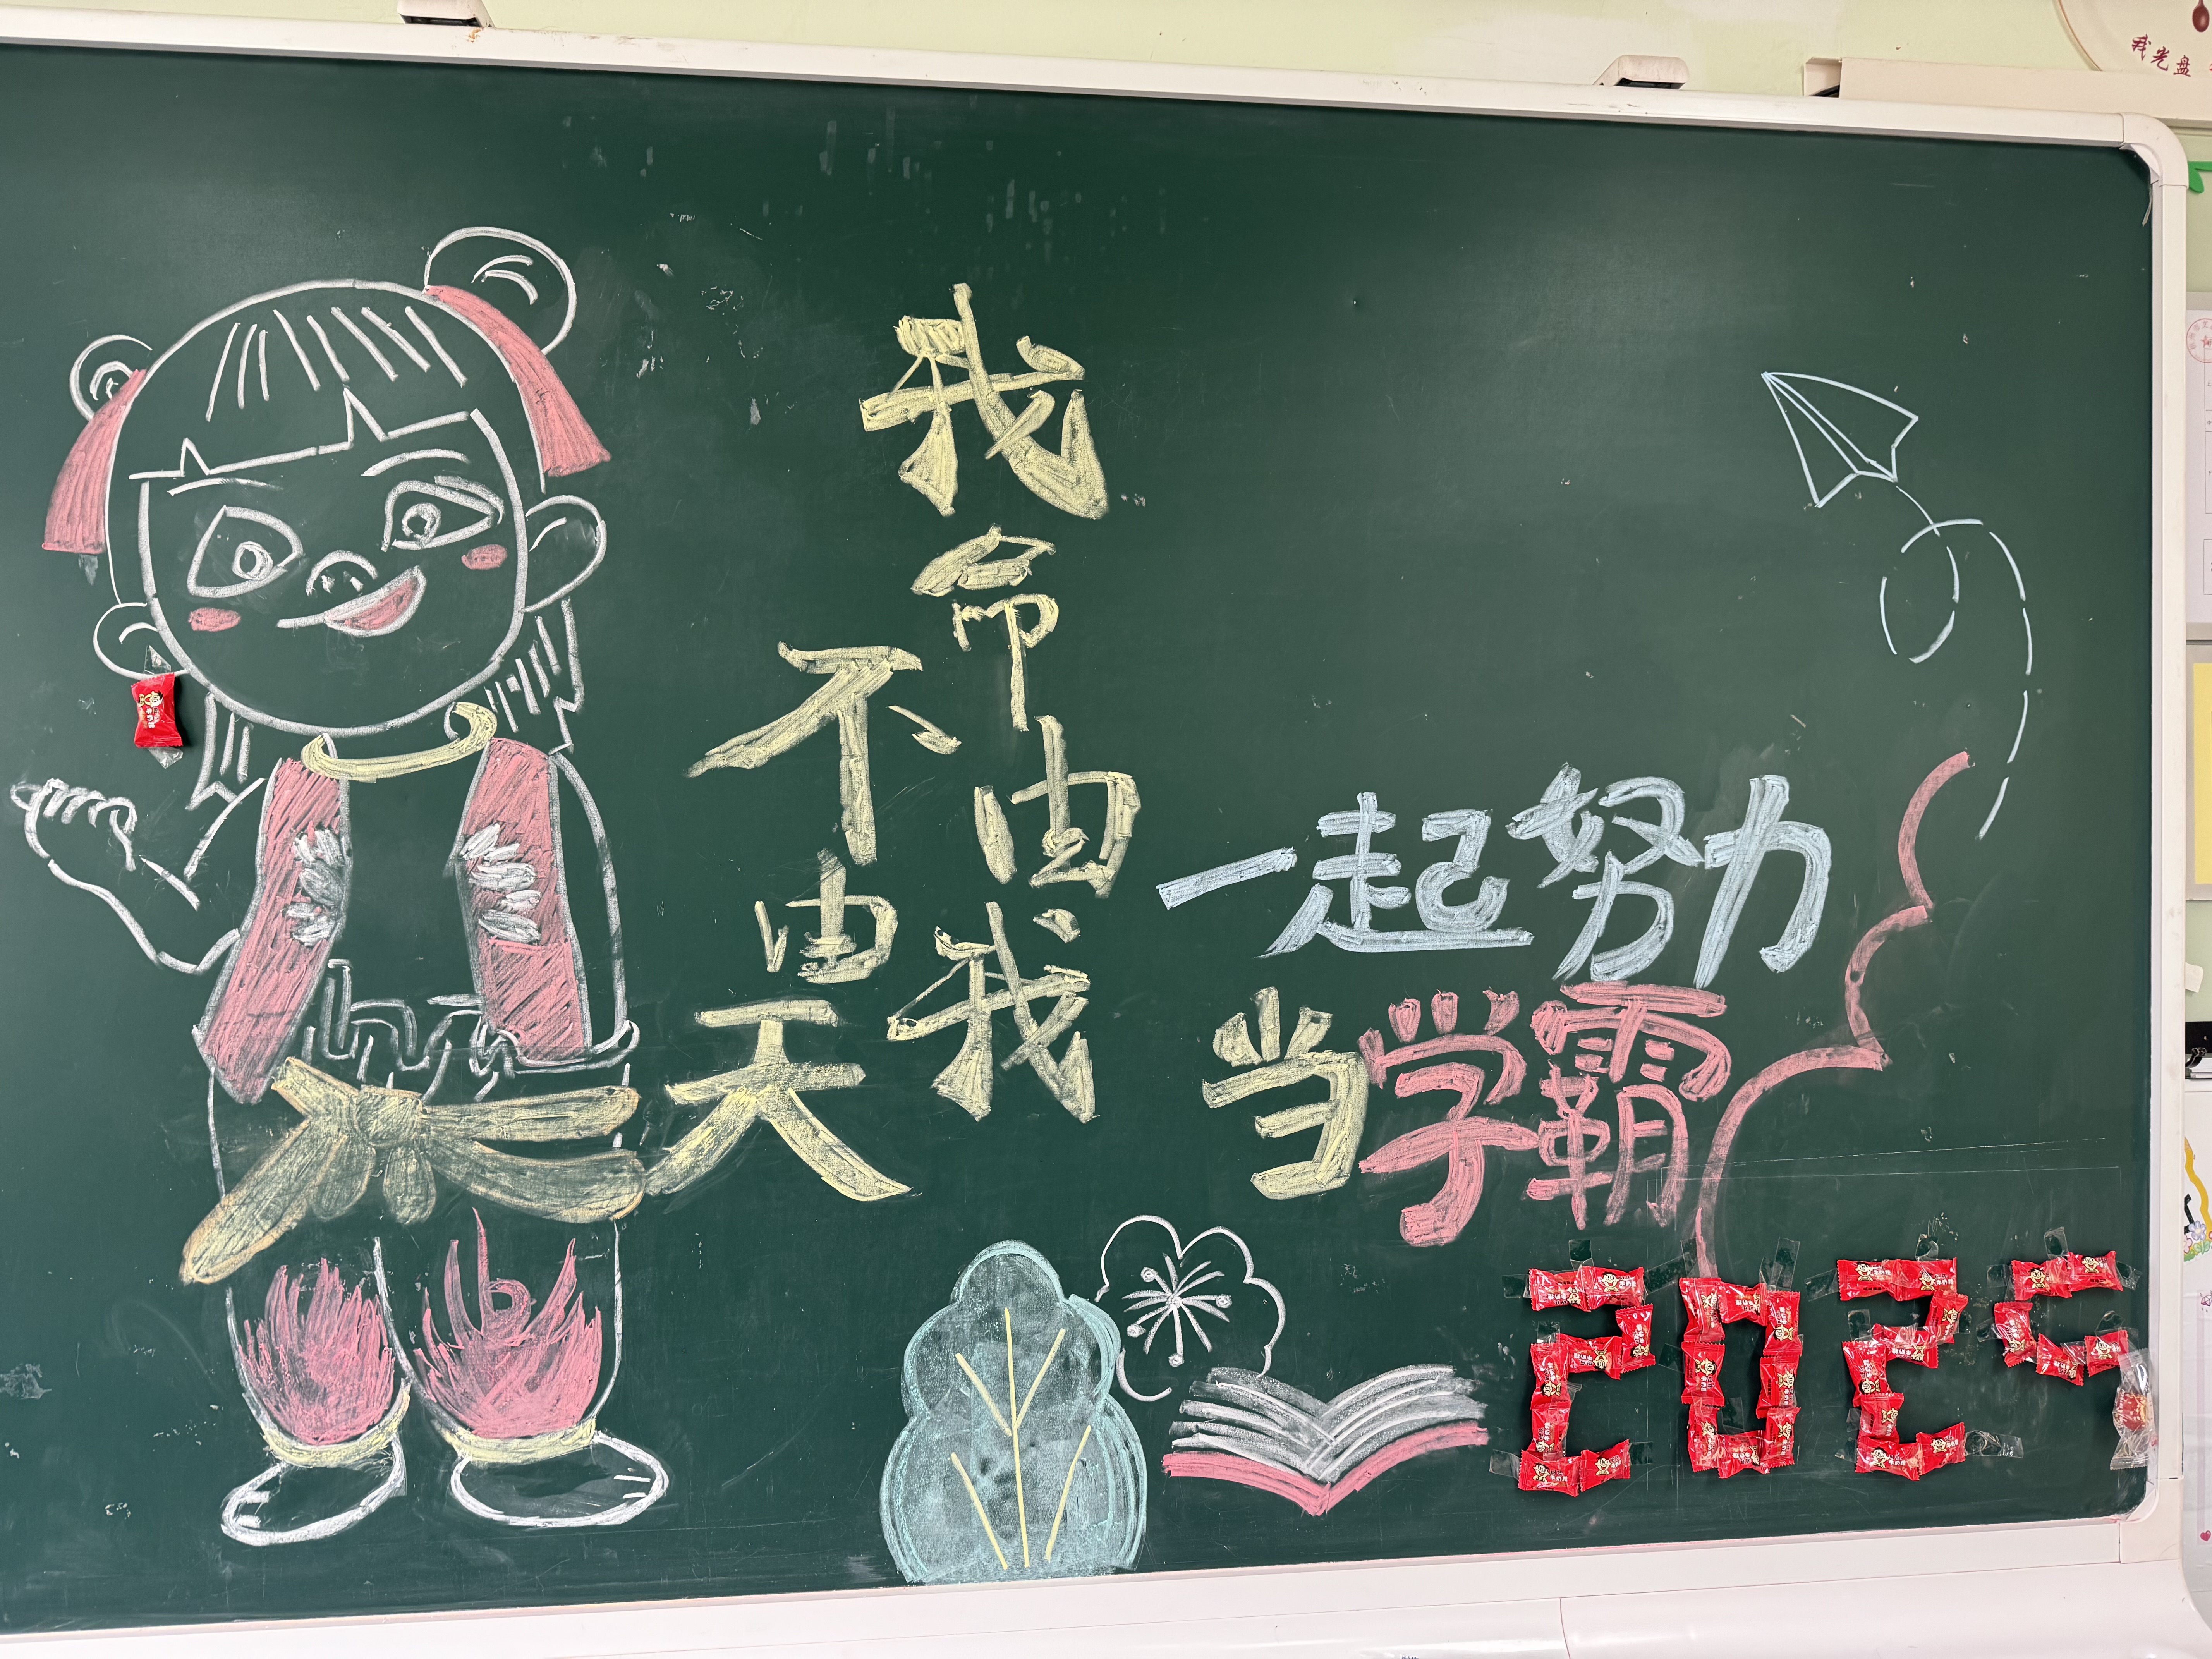 我命由我
不由天
一起努力
当学霸
2025
我光盘